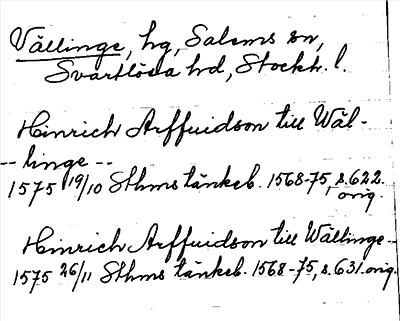 Vällinge, hg, Salems sn,
Svartlösa hd, Stockh. l.
Hinrich Arffuidson till Wäl-
-- linge --
1575 19/10 Sthms tänkeb. 1568-75, s. 622.
orig.
Hinrich Arffuidson till Wällinge --
1575 26/11 Sthms tänkeb. 1568-75, s. 631. orig.